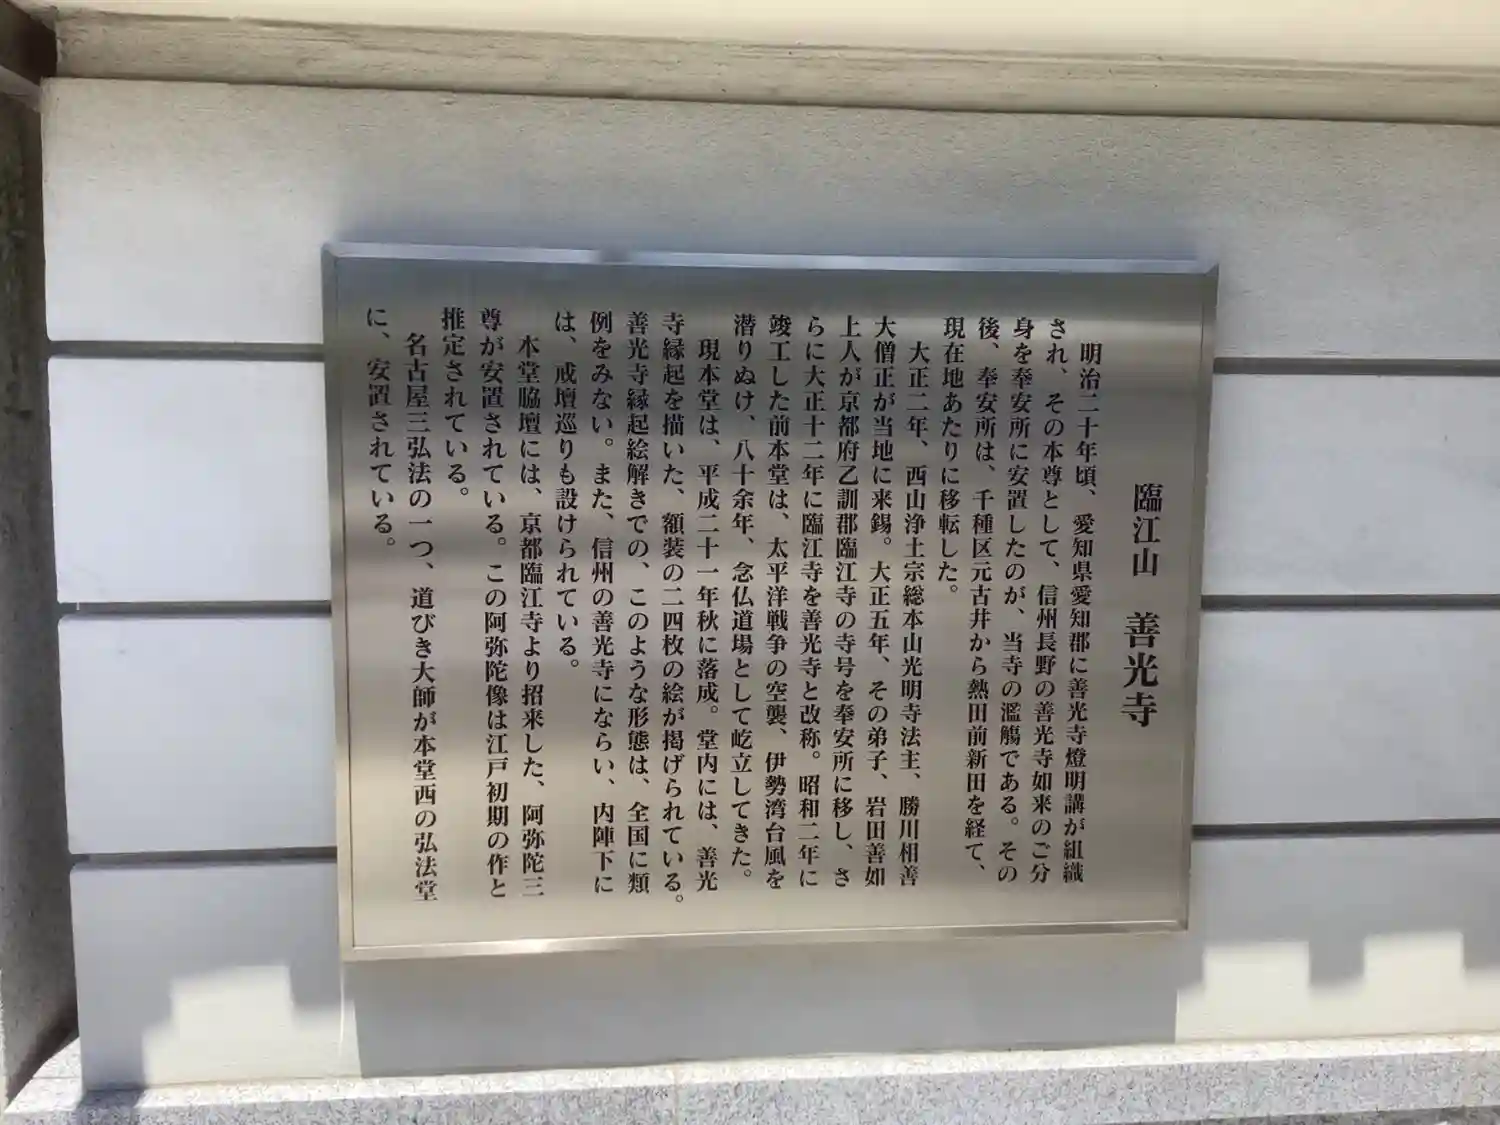 臨江山　善光寺
　明治二十年頃、愛知県愛知郡に善光寺燈明講が組織
され、その本尊として、信州長野の善光寺如来のご分
身を奉安所に安置したのが、当寺の濫觴である。その
後、奉安所は、千種区元古井から熱田前新田を経て、
現在地あたりに移転した。
　大正二年、西山浄土宗総本山光明寺法主、勝川相善
大僧正が当地に来錫。大正五年、その弟子、岩田善如
上人が京都府乙訓郡臨江寺の寺号を奉安所に移し、さ
らに大正十二年に臨江寺を善光寺と改称。昭和二年に
竣工した前本堂は、太平洋戦争の空襲、伊勢湾台風を
潜りぬけ、八十余年、念仏道場として屹立してきた。
　現本堂は、平成二十一年秋に落成。堂内には、善光
寺縁起を描いた、額装の二四枚の絵が掲げられている。
善光寺縁起絵解きでの、このような形態は、全国に類
例をみない。また、信州の善光寺にならい、内陣下に
は、戒壇巡りも設けられている。
　本堂脇壇には、京都臨江寺より招来した、阿弥陀三
尊が安置されている。この阿弥陀像は江戸初期の作と
推定されている。
　名古屋三弘法の一つ、道びき大師が本堂西の弘法堂
に、安置されている。